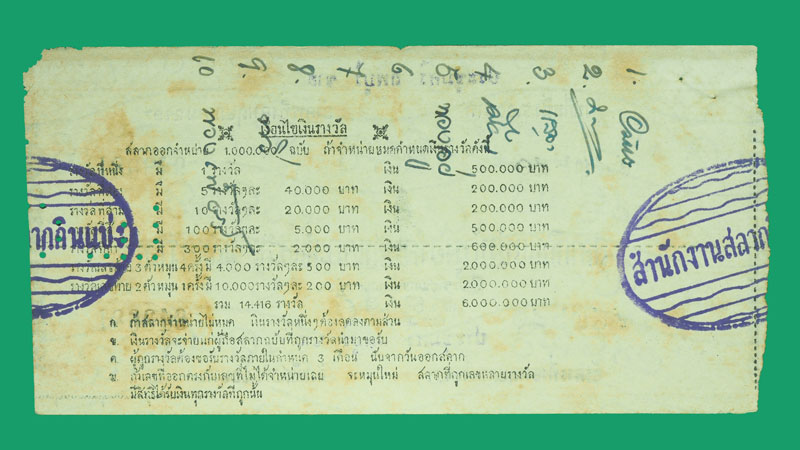 เงื่อนไขเงินรางวัล
สลากออกจำหน่าย 1.000.000 ฉบับ ถ้าจำหน่ายหมดกำหนดเงินรางวัลดังนี้
รางวัลที่หนึ่ง มี 1 รางวัล เงิน 500.000 บาท
มี 5 รางวัลๆละ 40.000 บาท เงิน 200.000 บาท
มี 10 รางวัลๆละ 20.000 บาท เงิน 200.000 บาท
มี 100 รางวัลๆละ 5.000 บาท เงิน 500.000 บาท
มี 300 รางวัลๆละ 2.000 บาท เงิน 600.000 บาท
3 ตัวหมุน 4 ครั้งมี 4.000 รางวัลๆละ 500 บาท เงิน 2.000.000 บาท
2 ตัวหมุน 1 ครั้งมี 10.000 รางวัลๆละ 200 บาท เงิน 2.000.000 บาท
รวม 14.416 รางวัล เงิน 6.000.000 บาท
ก. ถ้าสลากจำหน่ายไม่หมด เงินรางวัลหนึ่งๆต้องลดลงตามส่วน
ข. เงินรางวัลจะจ่ายแก่ผู้ถือสลากฉบับที่ถูกรางวัลนำมาขอรับ
ค. ผู้ถูกรางวัลต้องขอรับรางวัลภายในกำหนด 3 เดือน นับจากวันออกสลาก
ฆ. ถ้าเลขที่ออกตรงกับเลขที่ไม่ได้จำหน่ายเลย จะหมุนใหม่ สลากที่ถูกเลขหลายรางวัล
มีสิทธิได้รับเงินทุกรางวัลที่ถูกนั้น
ากกินแบ่ง
สำนักงานสลาก
1.
2.
3.
4.
5 ทองอยู่
6
7.
8.
9.
10